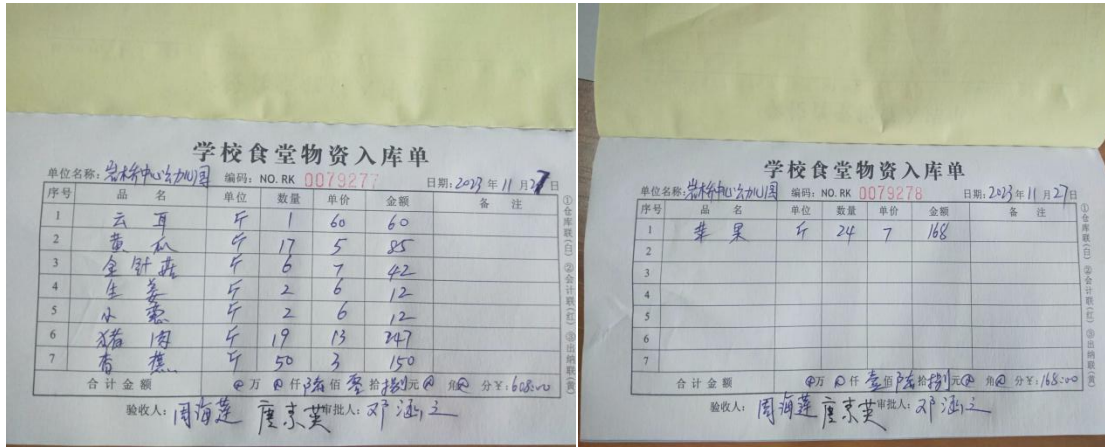 学校食堂物资入库单
单位名称:岩桥中心幼儿园 编码: NO.RK 0079277 日期:2023年11月27日
序号 品名 单位 数量 单价 金额 备注
1 云耳 斤 1 60 60
2 黄瓜 斤 17 5 85
3 金针菇 斤 6 7 42
4 生姜 斤 2 6 12
5 小葱 斤 2 6 12
6 猪肉 斤 19 13 247
7 香蕉 斤 50 3 150
合计金额 万 仟陆佰零拾捌元 角 分¥:608:00
验收人:周海莲 唐东英 审批人:邓
①仓库联(白) ②会计联(红) ③出纳联(黄)
学校食堂物资入库单
单位名称:岩桥中心幼儿园 编码: NO.RK 0079278 日期:2023年11月27日
序号 品名 单位 数量 单价 金额 备注
1 苹果 斤 24 7 168
2
3
4
5
6
7
合计金额 万 仟壹佰陆拾捌元 角 分¥:168:00
验收人:周海莲 唐东英 审批人:邓
①仓库联(白) ②会计联(红) ③出纳联(黄)